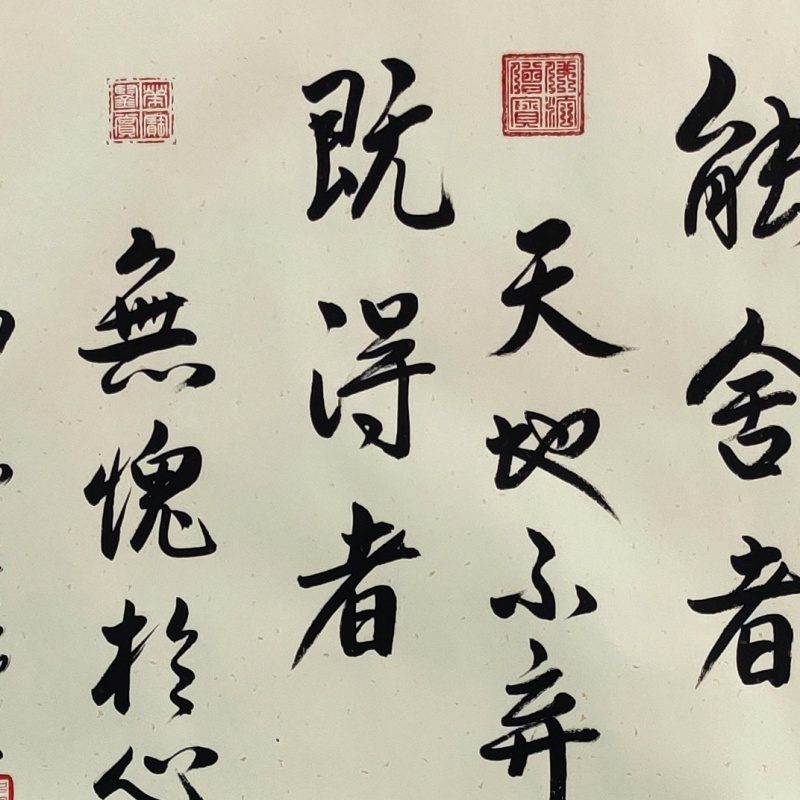 能舍者
天地不弃
既得者
無愧於心